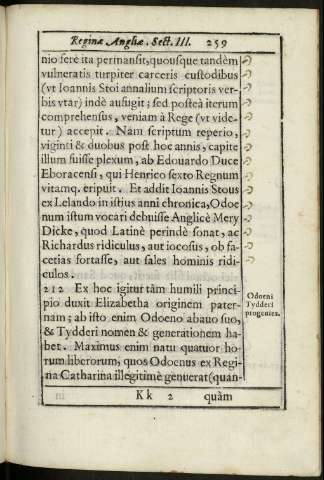 Reginæ Angliæ. Sect. III. 259
nio ferè ita permansit, quousque tandèm
vulneratis turpiter carceris custodibus
(vt Ioannis Stoi annalium scriptoris ver-
bis vtar) indè aufugit; sed posteà iterum
comprehensus, veniam à Rege (vt vide-
tur) accepit. Nàm scriptum reperio,
viginti & duobus post hoc annis, capite
illum fuisse plexum, ab Edouardo Duce
Eboracensi, qui Henrico sexto Regnum
vitamq. eripuit. Et addit Ioannis Stous
ex Lelando in istius anni chronica, Odoe
num istum vocari debuisse Anglicè Mery
Dicke, quod Latinè perindè sonat, ac
Richardus ridiculus, aut iocosus, ob fa-
cetias fortasse, aut sales hominis ridi-
culos.
212 Ex hoc igitur tàm humili princi-
pio duxit Elizabetha originem pater-
nam; ab isto enim Odoeno abauo suo,
& Tydderi nomen & generationem ha-
bet. Maximus enim natu quatuor ho-
rum liberorum, quos Odoenus ex Regi-
na Catharina illegitimè genuerat (quan-
Odoeni
Tydderi
progenies.
K k 2 quàm